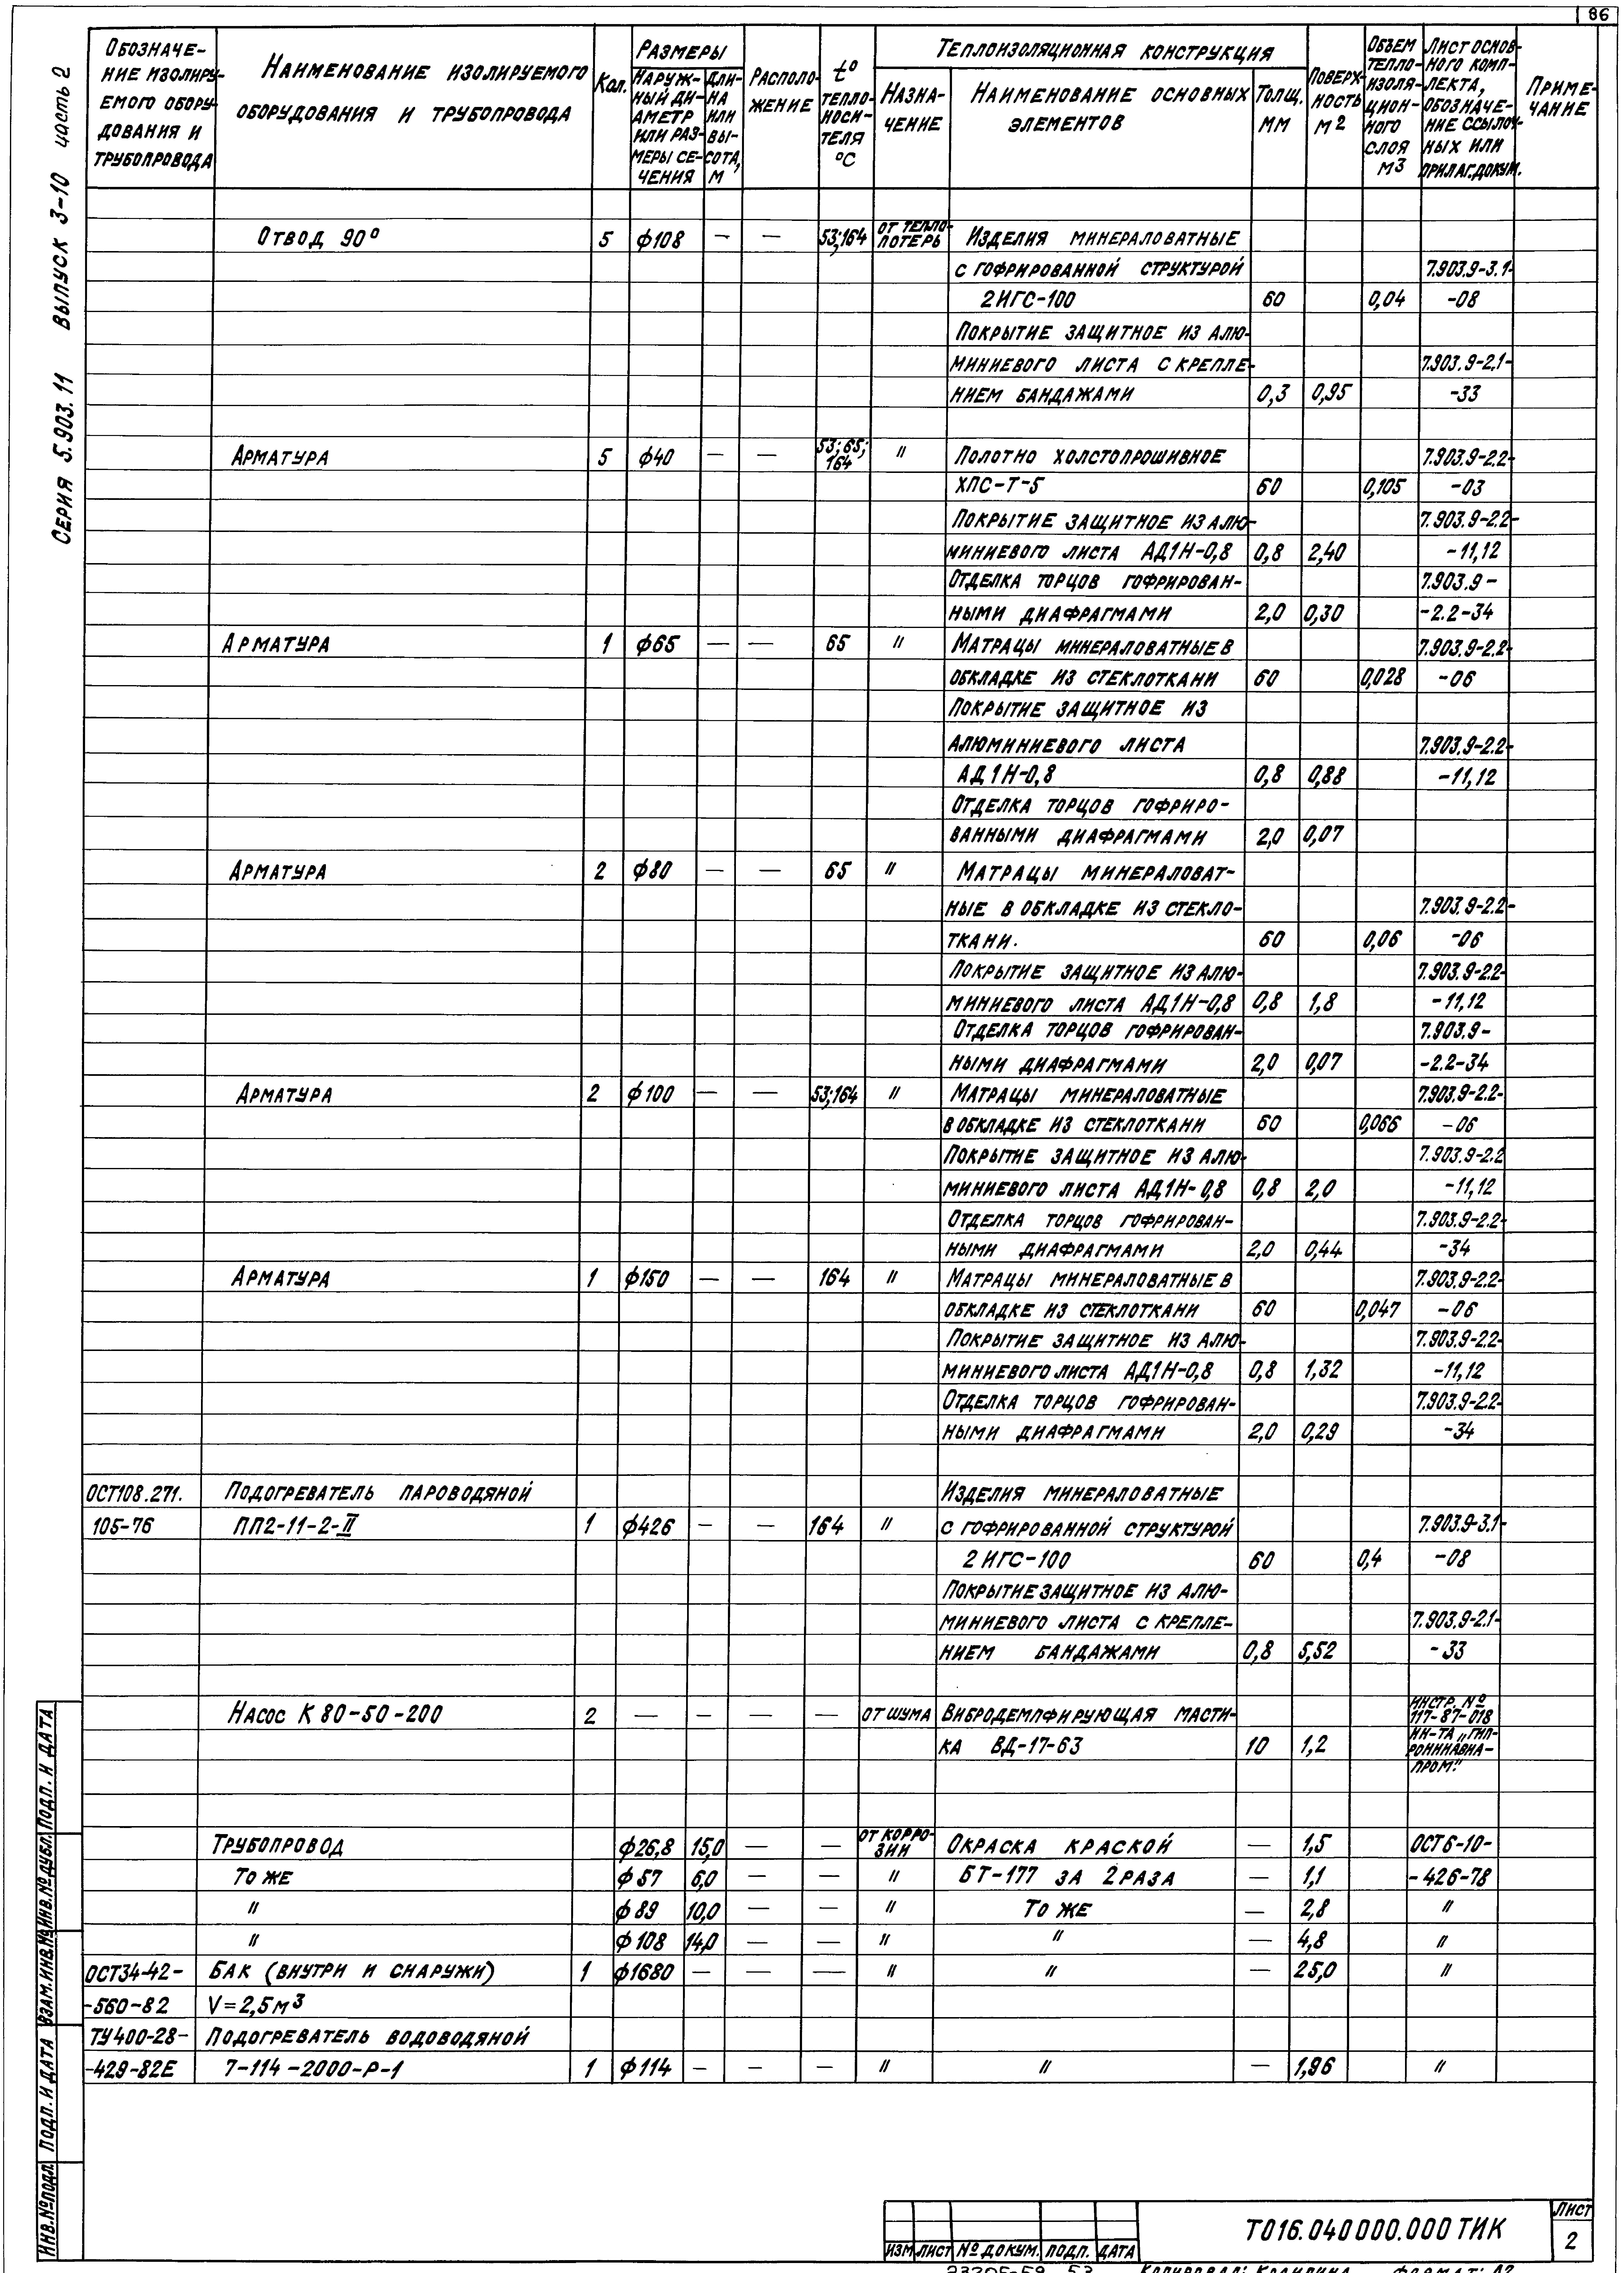 86
Серия 5.903.11 Выпуск 3-10 часть 2
Обозначе-
ние изолиру-
емого обору-
дования и
трубопровода
Наименование изолируемого
оборудования и трубопровода
Кол.
Размеры
Наруж-
ный ди-
аметр
или раз-
меры се-
чения
Дли-
на
или
вы-
сота,
м
Располо-
жение
t°
тепло-
носи-
теля
°C
Теплоизоляционная конструкция
Назна-
чение
Наименование основных
элементов
Толщ.
мм
Поверх-
ность
м2
Объем
тепло-
изоля-
цион-
ного
слоя
м3
Лист основ-
ного комп-
лекта,
обозначе-
ние ссылоч-
ных или
прилаг.докум.
Приме-
чание
Отвод 90° 5 ф108 — — 53;164 От тепло-
потерь Изделия минераловатные
с гофрированной структурой 7.903.9-3.1-
2ИГС-100 60 0,04 -08
Покрытие защитное из алю-
миниевого листа с крепле- 7.903.9-2.1-
нием бандажами 0,3 0,95 -33
Арматура 5 ф40 — — 53;65;
164 " Полотно холстопрошивное 7.903.9-2.2-
ХПС-Т-5 60 0,105 -03
Покрытие защитное из алю- 7.903.9-2.2-
миниевого листа АД1Н-0,8 0,8 2,40 -11,12
Отделка торцов гофрирован- 7.903.9-
ными диафрагмами 2,0 0,30 -2.2-34
Арматура 1 ф65 — — 65 " Матрацы минераловатные в 7.903.9-2.2-
обкладке из стеклоткани 60 0,028 -06
Покрытие защитное из
алюминиевого листа 7.903.9-2.2-
АД1Н-0,8 0,8 0,88 -11,12
Отделка торцов гофриро-
ванными диафрагмами 2,0 0,07
Арматура 2 ф80 — — 65 " Матрацы минераловат-
ные в обкладке из стекло- 7.903.9-2.2-
ткани. 60 0,06 -06
Покрытие защитное из алю- 7.903.9-2.2-
миниевого листа АД1Н-0,8 0,8 1,8 -11,12
Отделка торцов гофрирован- 7.903.9-
ными диафрагмами 2,0 0,07 -2.2-34
Арматура 2 ф100 — — 53;164 " Матрацы минераловатные 7.903.9-2.2-
в обкладке из стеклоткани 60 0,066 -06
Покрытие защитное из алю- 7.903.9-2.2
миниевого листа АД1Н-0,8 0,8 2,0 -11,12
Отделка торцов гофрирован- 7.903.9-2.2-
ными диафрагмами 2,0 0,44 -34
Арматура 1 ф150 — — 164 " Матрацы минераловатные в 7.903.9-2.2-
обкладке из стеклоткани 60 0,047 -06
Покрытие защитное из алю- 7.903.9-2.2-
миниевого листа АД1Н-0,8 0,8 1,32 -11,12
Отделка торцов гофрирован- 7.903.9-2.2-
ными диафрагмами 2,0 0,29 -34
ОСТ108.271. Подогреватель пароводяной Изделия минераловатные
105-76 ПП2-11-2-II 1 ф426 — — 164 " с гофрированной структурой 7.903.9-3.1-
2ИГС-100 60 0,4 -08
Покрытие защитное из алю-
миниевого листа с крепле- 7.903.9-2.1-
нием бандажами 0,8 5,52 -33
Насос К 80-50-200 2 — — — — От шума Вибродемпфирующая масти- Инстр. №
117-87-018
ка ВД-17-63 10 1,2 ин-та „Гип-
рониавиа-
пром."
Трубопровод ф26,8 15,0 — — От корро-
зии Окраска краской — 1,5 ОСТ6-10-
То же ф57 6,0 — — " БТ-177 за 2 раза — 1,1 -426-78
" ф89 10,0 — — " То же — 2,8 "
" ф108 14,0 — — " " — 4,8 "
ОСТ34-42- Бак (внутри и снаружи) 1 ф1680 — — — " " — 25,0 "
-560-82 V=2,5м3
ТУ400-28- Подогреватель водоводяной
-429-82Е 7-114-2000-Р-1 1 ф114 — — — " " — 1,96 "
Инв.№подл. Подп. и дата Взам.инв.№ Инв.№дубл. Подп. и дата
Изм Лист № докум. Подп. Дата
Т016.040000.000 ТИК
Лист
2